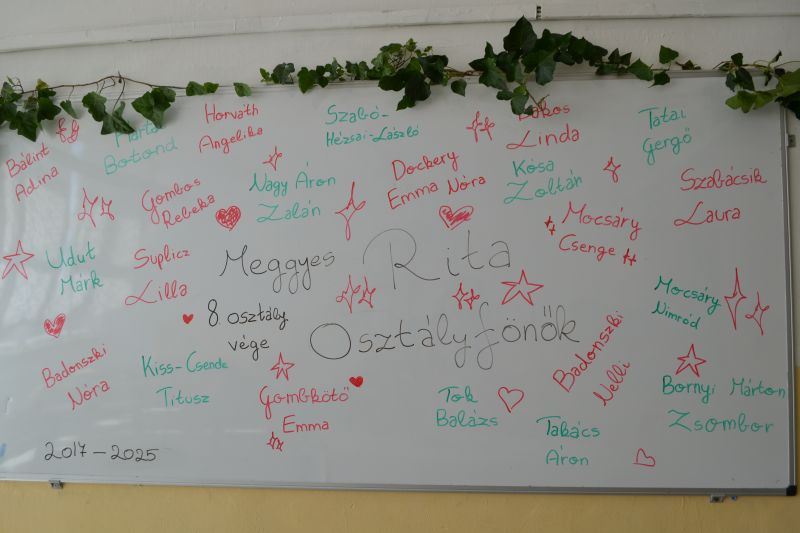 Bálint
Adina
Márta
Botond
Horváth
Angelika
Szabó-
Hézsai-László
Bakos
Linda
Tatai
Gergő
Gombos
Rebeka
Nagy Áron
Zalán
Dockery
Emma Nóra
Kósa
Zoltán
Szabácsik
Laura
Mocsáry
Csenge
Udut
Márk
Suplicz
Lilla
Meggyes Rita
8. osztály
vége
Osztályfőnök
Mocsáry
Nimród
Badonszki
Nóra
Kiss-Csende
Titusz
Gombkötő
Emma
Tok
Balázs
Badonszki
Nelli
Takács
Áron
Bornyi Márton
Zsombor
2017-2025